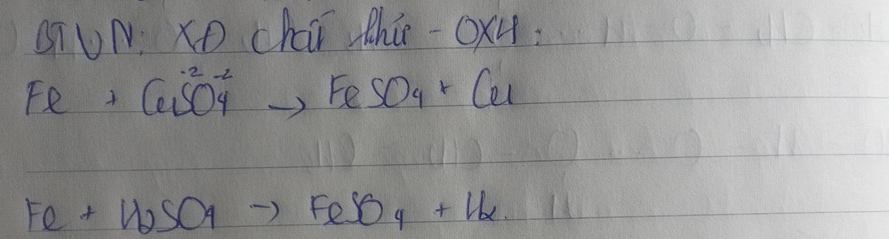 BTVN: XĐ chất khử - OXH:
Fe + CuSO4 -2 -2 → FeSO4 + Cu
Fe + H2SO4 → FeSO4 + H2.